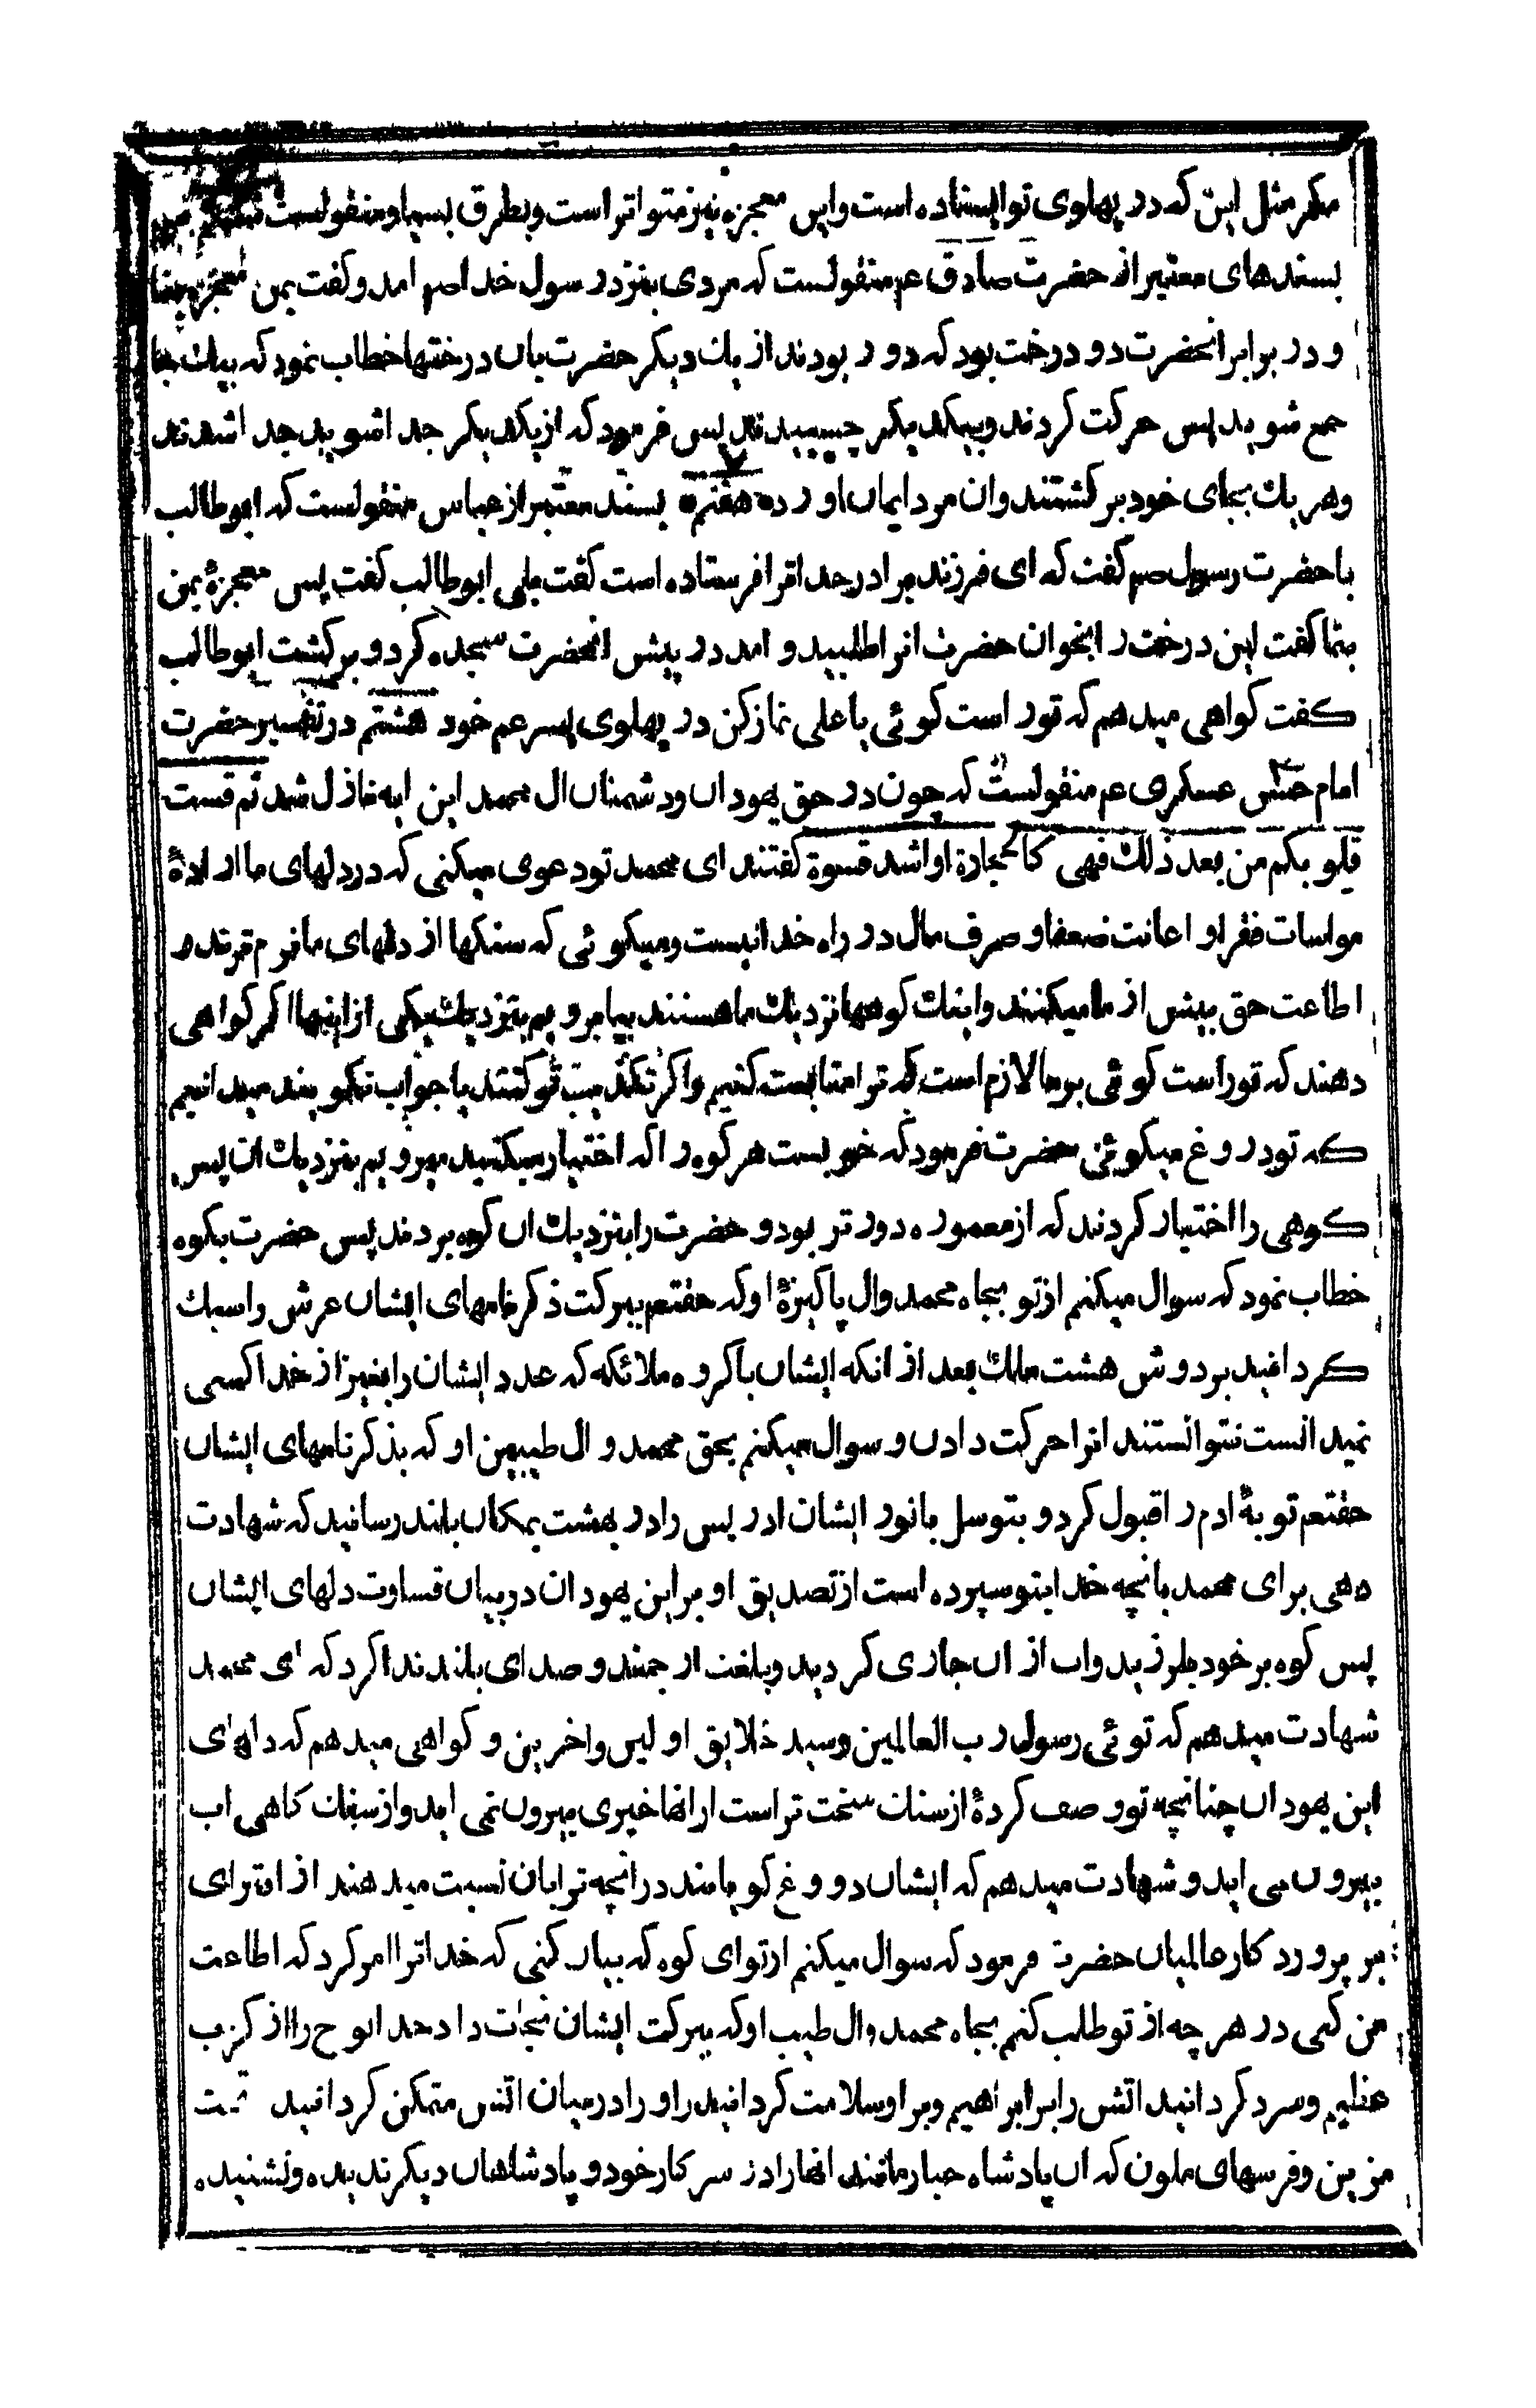 مكر مثل اين كه در پهلوى تو ايستاده است واين معجزه نيز متواتر است وبطرق بسيار منقولست ششم
بسندهاى معتبر از حضرت صادق عم منقولست كه مردى بنزد رسول خدا صم امد وكفت بمن معجزه بنما
و در برابر انحضرت دو درخت بود كه دور بودند از يك ديكر حضرت بان درختها خطاب نمود كه بيك جا
جمع شويد پس حركت كردند وبيكديكر چسپيدند پس فرمود كه از يكديكر جدا شويد جدا شدند
وهر يك بجاى خود بر كشتند وان مرد ايمان اورد هفتم بسند معتبر از عباس منقولست كه ابو طالب
با حضرت رسول صم كفت كه اى فرزند برادر خدا ترا فرستاده است كفت بلى ابو طالب كفت پس معجزهٔ بمن
بنما كفت اين درخت را بخوان حضرت انرا طلبيد و امد در پيش انحضرت سجده كرد و بر كشت ابو طالب
كفت كواهى ميدهم كه تو راست كوئى يا على نماز كن در پهلوى پسر عم خود هشتم در تفسير حضرت
امام حسن عسكرى عم منقولست كه چون در حق يهودان ودشمنان ال محمد اين ايه نازل شد ثم قست
قلوبكم من بعد ذلك فهى كالحجارة او اشد قسوة كفتند اى محمد تو دعوى ميكنى كه در دلهاى ما ارادهٔ
مواسات فقرا و اعانت ضعفا و صرف مال در راه خدا نيست و ميكوئى كه سنكها از دلهاى ما نرم ترند و
اطاعت حق بيش از ما ميكنند واينك كوهها نزديك ما هستند بيا برويم بنزديك يكى از اينها اكر كواهى
دهند كه تو راست كوئى بر ما لازم است كه ترا متابعت كنيم واكر تكذيب تو كنند يا جواب نكويند ميدانيم
كه تو دروغ ميكوئى حضرت فرمود كه خوبست هر كوه را كه اختيار ميكنيد ميرويم بنزديك ان پس
كوهى را اختيار كردند كه از معموره دور تر بود و حضرت را بنزديك ان كوه بردند پس حضرت بكوه
خطاب نمود كه سوال ميكنم از تو بجاه محمد وال پاكيزهٔ او كه حقتعم ببركت ذكر نامهاى ايشان عرش را سبك
كردانيد بر دوش هشت ملك بعد از انكه ايشان با كروه ملائكه كه عدد ايشان را بغير از خدا كسى
نميدانست نتوانستند انرا حركت دادن و سوال ميكنم بحق محمد و ال طيبين او كه بذكر نامهاى ايشان
حقتعم توبهٔ ادم را قبول كرد و بتوسل بانور ايشان ادريس را در بهشت بمكان بلند رسانيد كه شهادت
دهى براى محمد بانچه خدا بتو سپرده است از تصديق او بر اين يهودان در بيان قساوت دلهاى ايشان
پس كوه بر خود بلرزيد واب از ان جارى كرديد وبلغت ارجمند و صداى بلند ندا كرد كه اى محمد
شهادت ميدهم كه توئى رسول رب العالمين وسيد خلايق اولين واخرين و كواهى ميدهم كه دلهاى
اين يهودان چنانچه تو وصف كردهٔ از سنك سخت تر است از انها خيرى بيرون نمى ايد و از سنك كاهى اب
بيرون مى ايد و شهادت ميدهم كه ايشان دروغ كويانند در انچه ترا بان نسبت ميدهند از افتراى
بر پروردكار عالميان حضرت فرمود كه سوال ميكنم از تو اى كوه كه بيان كنى كه خدا ترا امر كرد كه اطاعت
من كنى در هر چه از تو طلب كنم بجاه محمد وال طيب او كه ببركت ايشان نجات داد خدا نوح را از كرب
عظيم وسرد كردانيد اتش را بر ابراهيم وبر او سلامت كردانيد و او را در ميان اتش متمكن كردانيد
مزين و فرشهاى ملون كه ان پادشاه جبار مانند انها را در سر كار خود و پادشاهان ديكر نديده ونشنيده